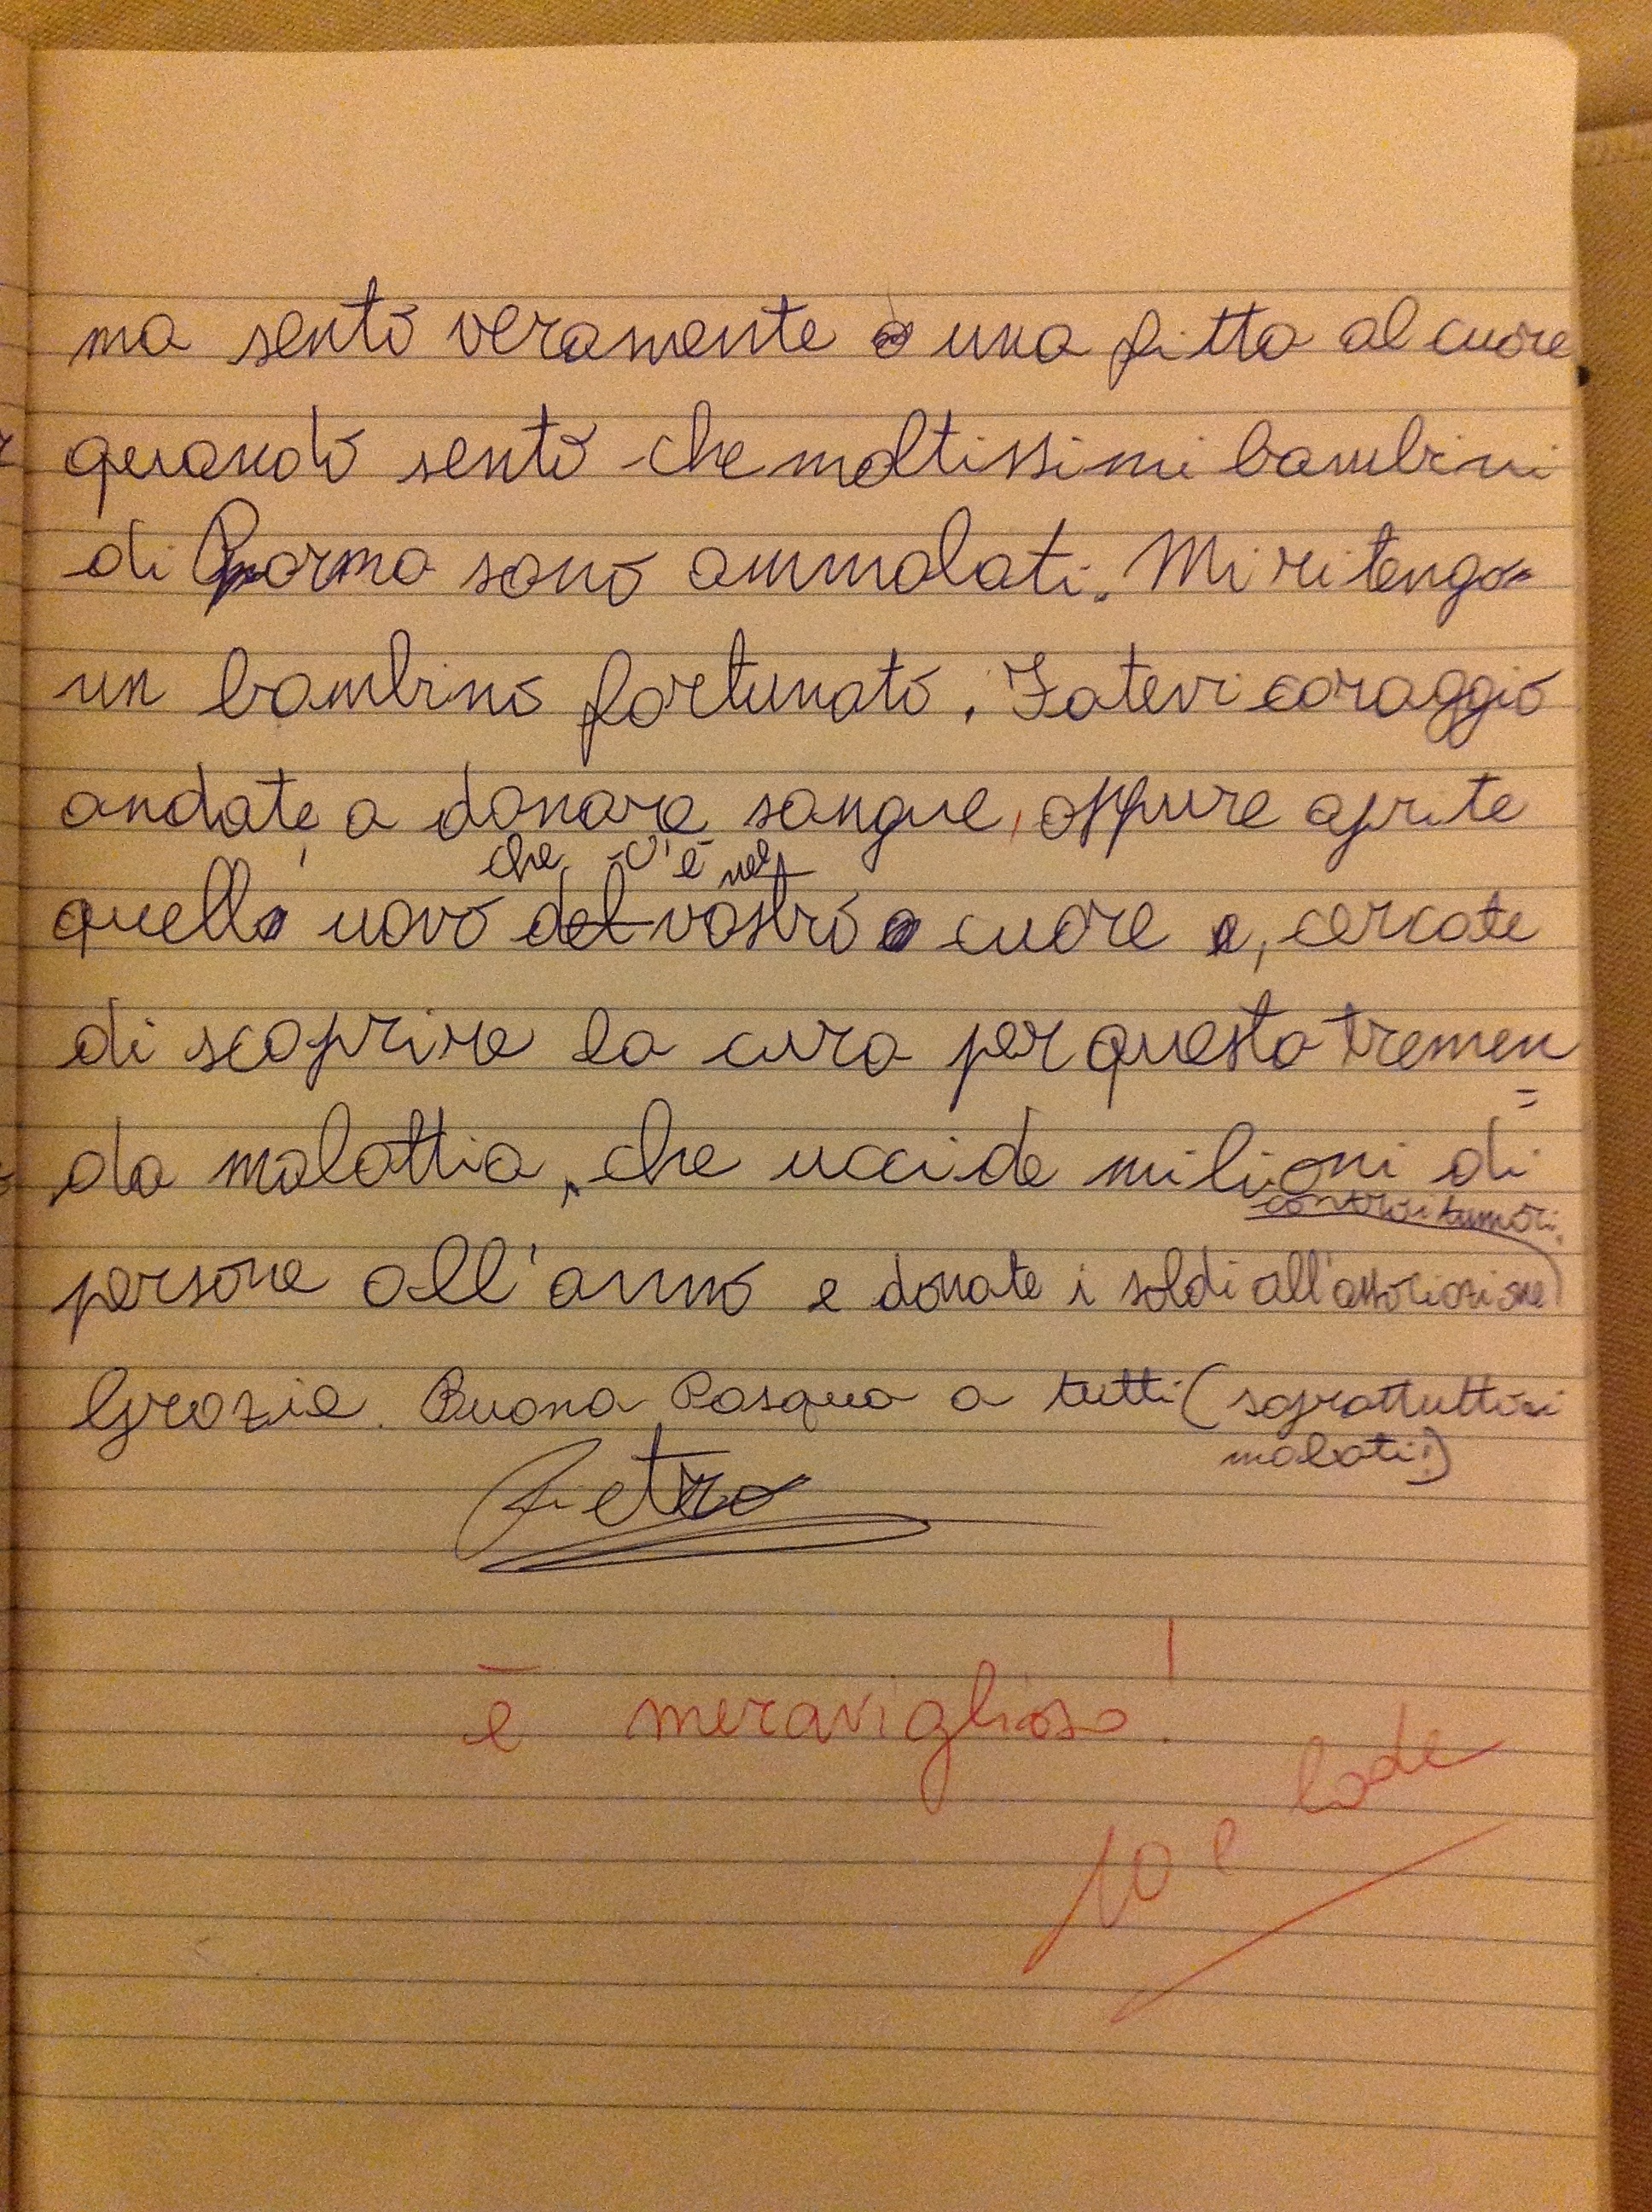 ma sento veramente una fitta al cuore
quando sento che moltissimi bambini
di Parma sono ammalati. Mi ritengo
un bambino fortunato. Fatevi coraggio
andate, a donare sangue, oppure aprite
che c'è nel
quello uovo del vostro cuore e, cercate
di scoprire la cura per questa tremen
=
da malattia, che uccide milioni di
contro i tumori.
persone all'anno e donate i soldi all'associazione
Grazie. Buona Pasqua a tutti (soprattutto ai
malati!)
Pietro
è meraviglioso!
10 e lode